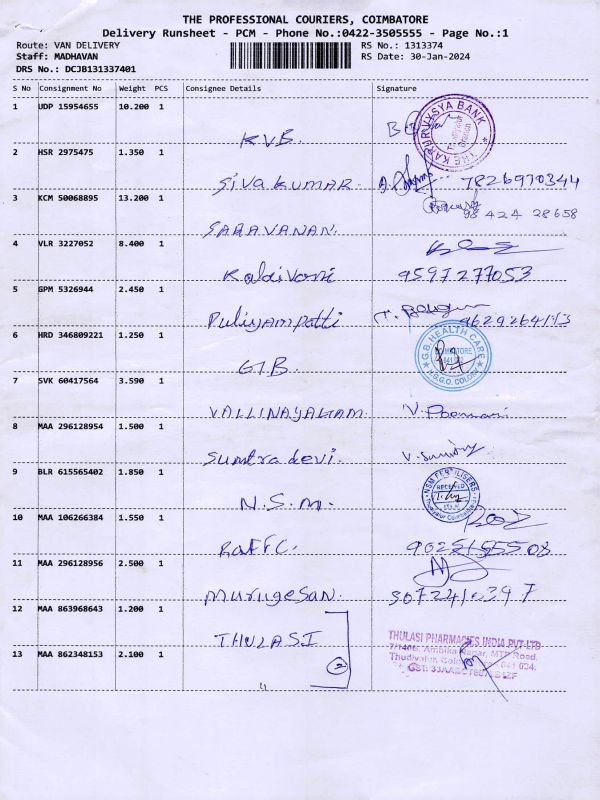 THE PROFESSIONAL COURIERS, COIMBATORE
Delivery Runsheet - PCM - Phone No.:0422-3505555 - Page No.:1
Route: VAN DELIVERY RS No.: 1313374
Staff: MADHAVAN RS Date: 30-Jan-2024
DRS No.: DCJB131337401
S No Consignment No Weight PCS Consignee Details Signature
1 UDP 15954655 10.200 1
KVB
THE KARUR VYSYA BANK
2 HSR 2975475 1.350 1
Siva KUMAR 7826970344
3 KCM 50068895 13.200 1
98 424 28658
SARAVANAN.
4 VLR 3227052 8.400 1
Kalaivani 9597277053
5 GPM 5326944 2.450 1
Puliyampatti
6 HRD 346809221 1.250 1
G.B. HEALTH CARE
7 SVK 60417564 3.590 1
VALLINAYAGAM.
8 MAA 296128954 1.500 1
Sumtra devi.
9 BLR 615565402 1.850 1
NSM FERTILISERS
RECEIVED
N.S.M.
10 MAA 106266384 1.550 1
11 MAA 296128956 2.500 1
Murugesan.
12 MAA 863968643 1.200 1
THULASI
2
THULASI PHARMACIES INDIA PVT LTD
Ambika Nagar, MTP Road.
13 MAA 862348153 2.100 1